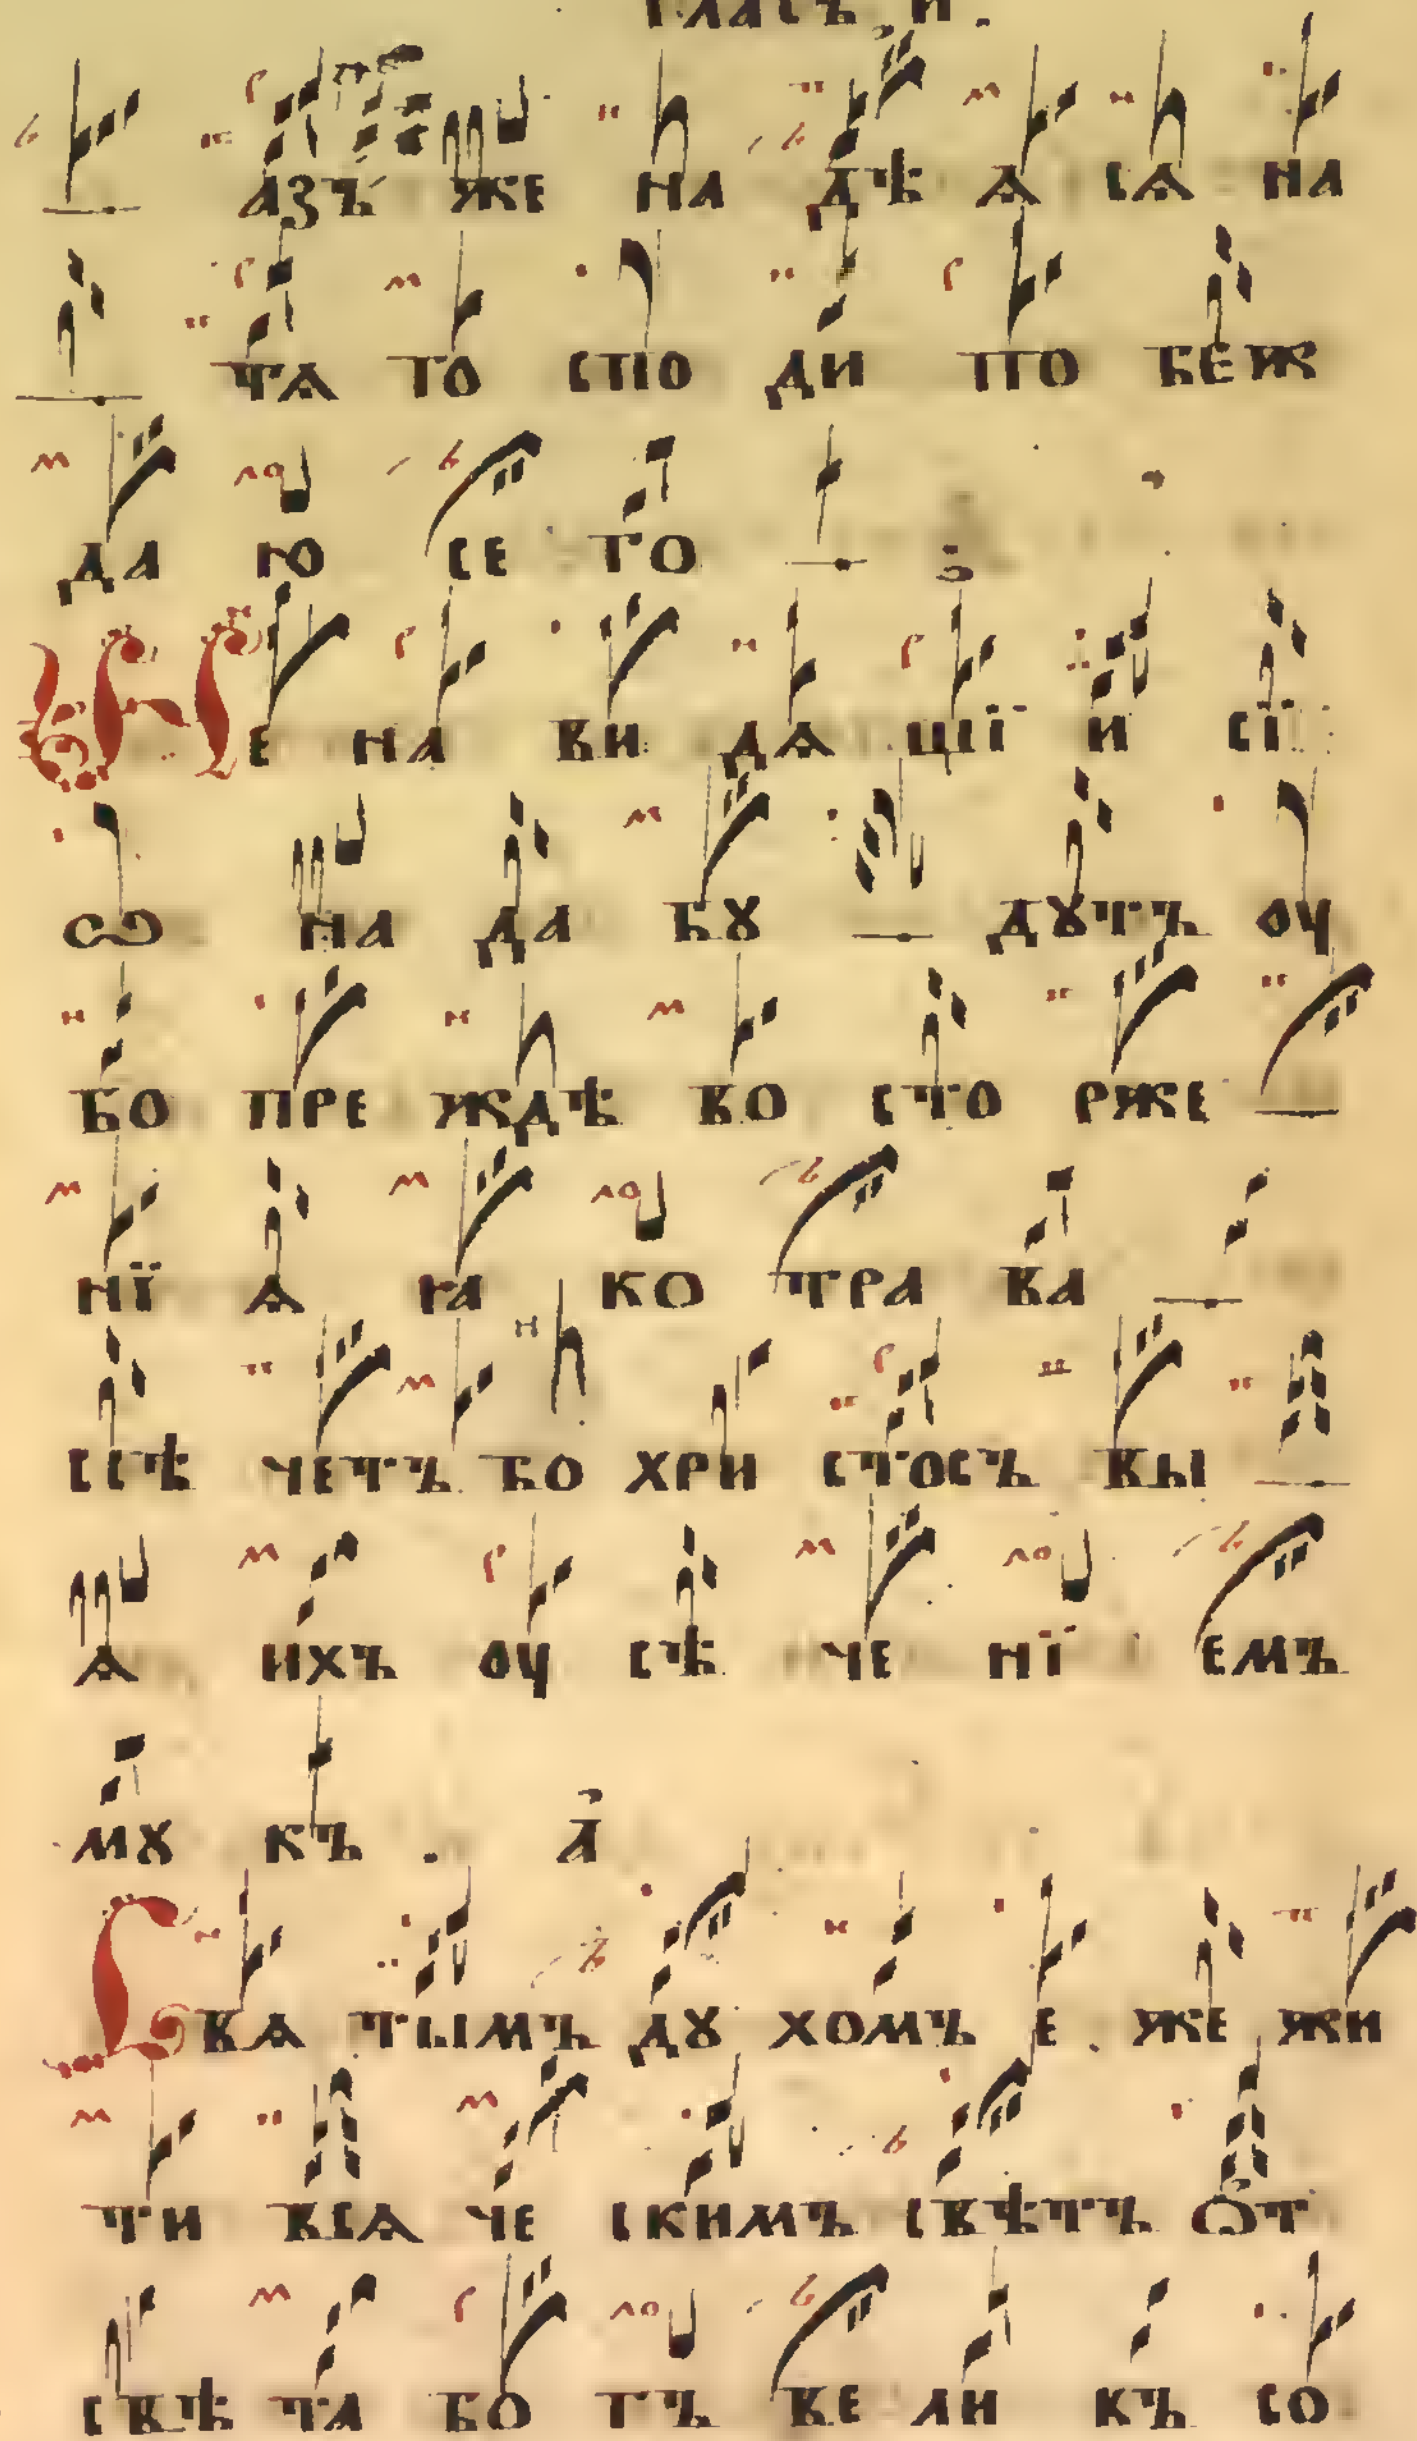 гласъ и .
азъ же на дѣ ѧ сѧ на
тѧ го спо ди по беж
да ю се го
Не на ви дѧ щїи и сї
ѡ на да бꙋ дꙋтъ оу
бо пре ждѣ во сто рже
нї ѧ ꙗ ко тра ва
ссѣ четъ бо хри стосъ вы
ѧ ихъ оу сѣ че нї емъ
мꙋ къ . а
Свѧ тымъ дꙋ хомъ е же жи
ти всѧ че скимъ свѣтъ ѿ
свѣ та бо гъ ве ли къ со